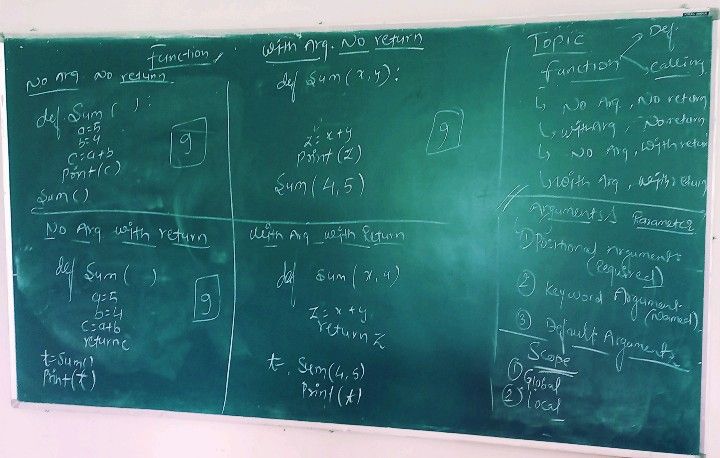 Function
No Arg No return
def Sum( ):
a=5
b=4
c=a+b
Print(c)
9
Sum()
With Arg. No return
def Sum(x,y):
z=x+y
Print(z)
9
Sum(4,5)
No Arg with return
def Sum( )
a=5
b=4
c=a+b
return c
9
t=Sum()
Print(t)
With Arg with Return
def Sum(x,y)
z=x+y
return z
t. Sum(4,5)
Print(t)
Topic
Function Def.
Calling
No Arg, No return
with Arg, No return
No Arg, With return
With Arg, with return
Arguments & Parameter
1) Positional Arguments
(required)
2 Keyword Argument
(Named)
3 Default Arguments
Scope
1 Global
2 Local